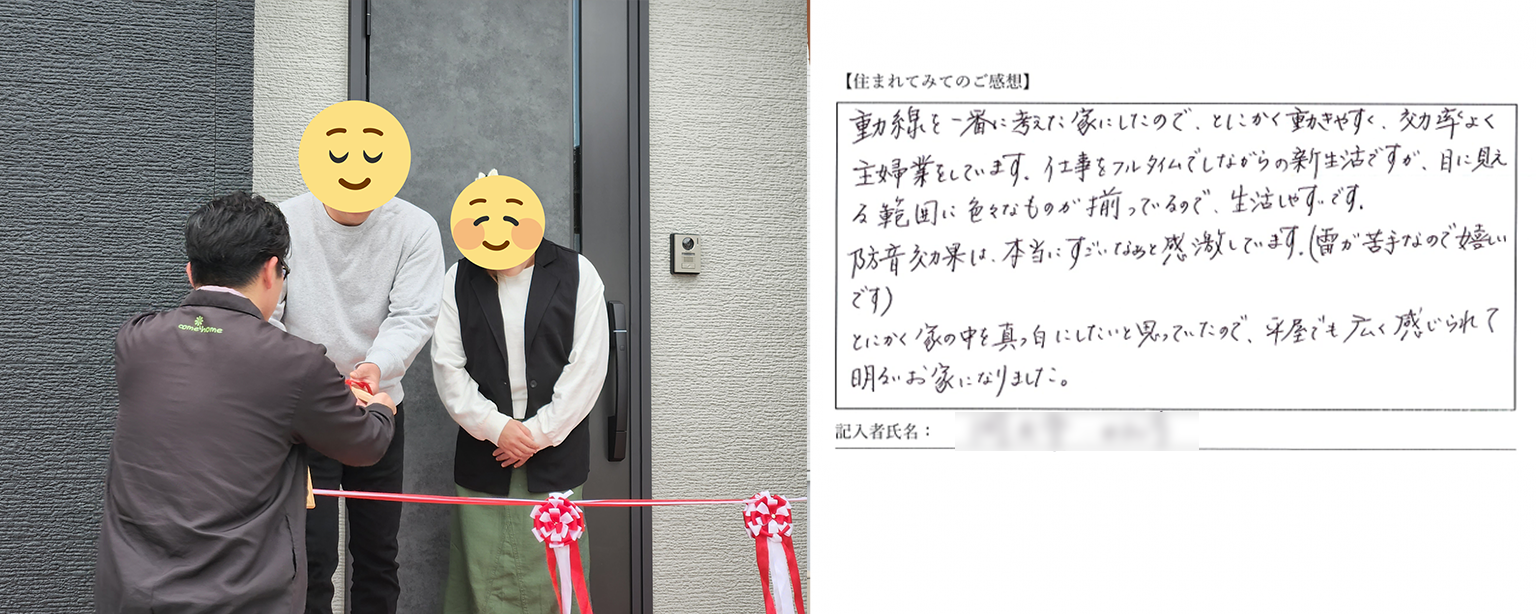 come home
【住まれてみてのご感想】
動線を一番に考えた家にしたので、とにかく動きやすく、効率よく
主婦業をしています。仕事をフルタイムでしながらの新生活ですが、目に見え
る範囲に色々なものが揃っているので、生活しやすいです。
防音効果は、本当にすごいなあと感激しています。(雷が苦手なので嬉しい
です)
とにかく家の中を真っ白にしたいと思っていたので、平屋でも広く感じられて
明るいお家になりました。
記入者氏名：